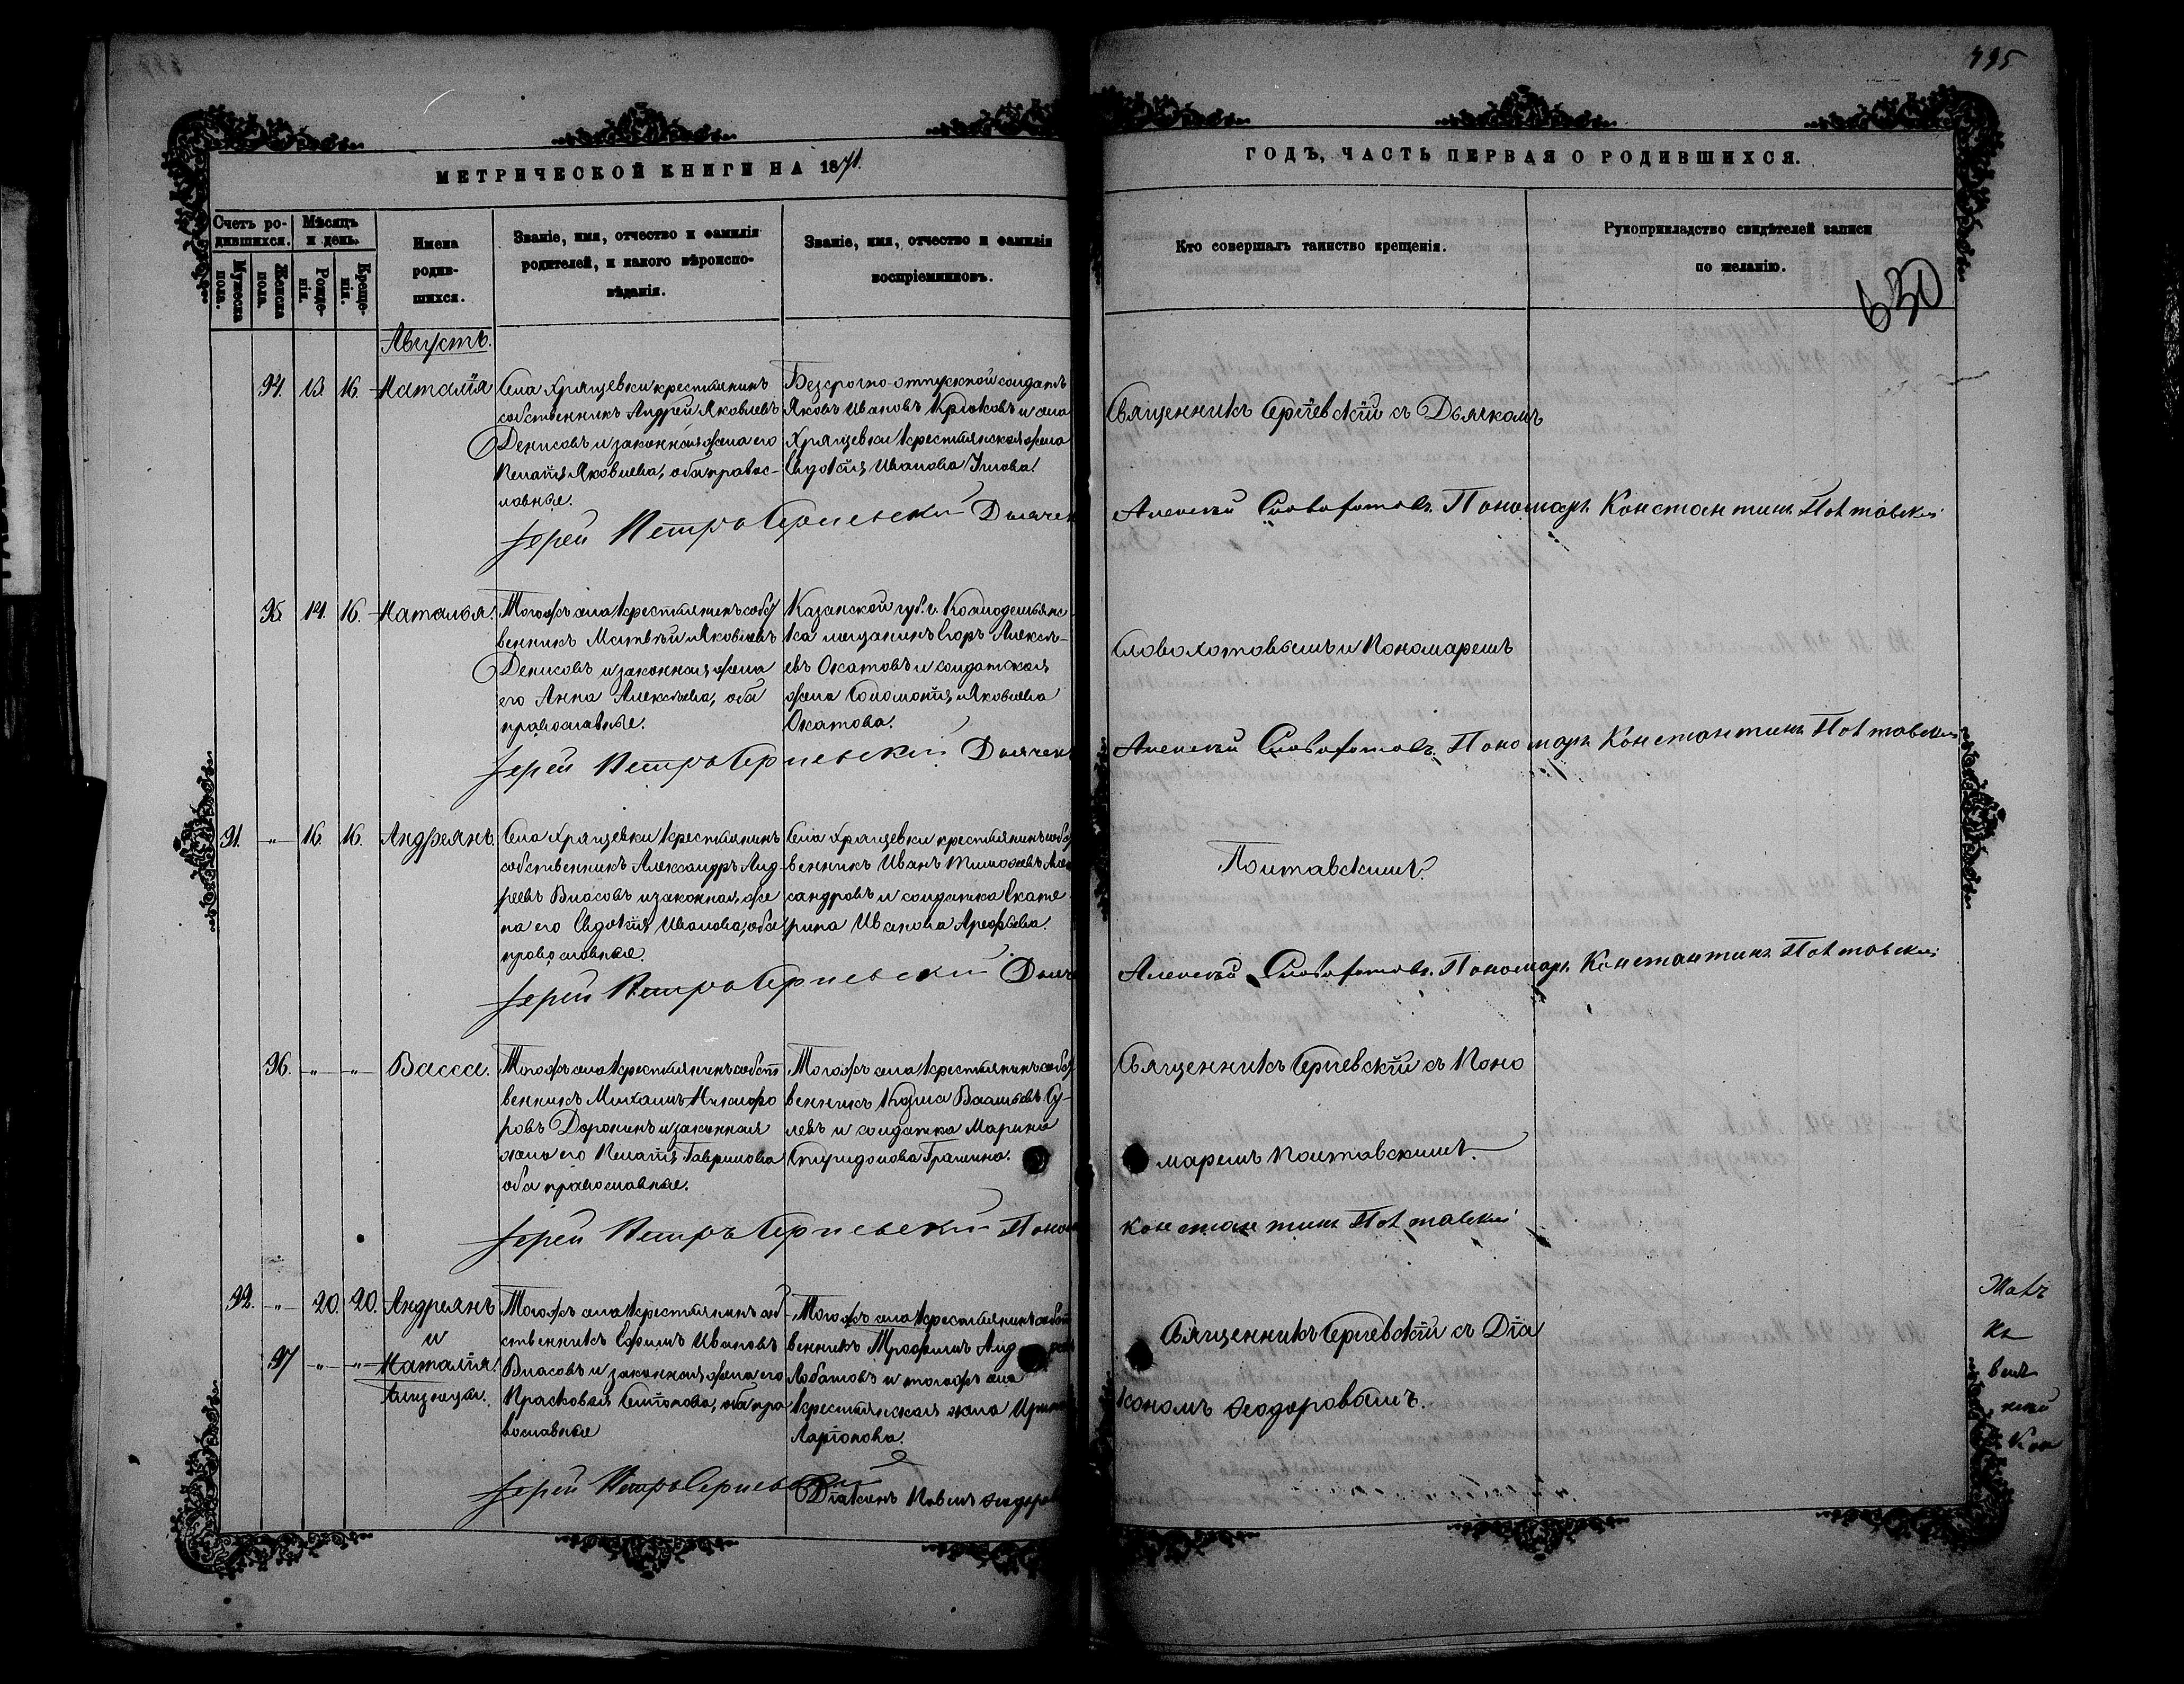 495
МЕТРИЧЕСКОЙ КНИГИ НА 1871.
ГОДЪ, ЧАСТЬ ПЕРВАЯ О РОДИВШИХСЯ.
630
Счетъ ро-
дившихся.
Мужеска
пола.
Женска
пола.
Мѣсяцъ
и день.
Рожде-
нія.
Креще-
нія.
Имена
родив-
шихся.
Званіе, имя, отчество и фамилія
родителей, и какого вѣроиспо-
вѣданія.
Званіе, имя, отчество и фамилія
воспріемниковъ.
Кто совершалъ таинство крещенія.
Рукоприкладство свидѣтелей записи
по желанію.
Августъ.
94. 13. 16. Наталія
Села Хрящевки крестьянинъ
собственникъ Андрей Яковлевъ
Денисовъ и законная жена его
Пелагія Яковлева, оба правос-
лавные.
Безсрочно-отпускной солдатъ
Яковъ Ивановъ Крюковъ и села
Хрящевки крестьянская жена
Евдокія Иванова
Священникъ Сергіевскій съ Дьячкомъ
Іерей Петръ Сергіевскій Дьячек
Алексѣй Словохотовъ. Пономарь Константинъ Полтавскій
95. 14. 16. Наталья.
Тогожъ села крестьянинъ собст
венникъ Матвѣй Яковлевъ
Денисовъ и законная жена
его Анна Алексѣева, оба
православные.
Казанской губ. г. Козмодемьянс-
ка мещанинъ Егоръ Алексѣ-
евъ Охатовъ и солдатская
жена Соломонія Яковлева
Охатова.
Словохотовымъ и Пономаремъ
Іерей Петръ Сергіевскій Дьячек
Алексѣй Словохотовъ. Пономарь Константинъ Полтавскій
91. -"- 16. 16. Андреянъ.
Села Хрящевки крестьянинъ
собственникъ Александръ Анд-
реевъ Власовъ и законная же
на его Евдокія Иванова, оба
православные.
Села Хрящевки крестьянинъ собс
венникъ Иванъ Тимофеевъ Алек
сандровъ и солдатка Екате
рина Иванова Арефьева.
Полтавскимъ.
Іерей Петръ Сергіевскій Дьяч
Алексѣй Словохотовъ. Пономарь Константинъ Полтавскій
96. -"- -"- Васса.
Тогожъ села крестьянинъ собст
венникъ Михаилъ Никифо
ровъ Доронинъ и законная
жена его Пелагія Гаврилова
оба православные.
Тогожъ села крестьянинъ собст
венникъ Козма Васильевъ Су-
левъ и солдатка Марина
Спиридонова Грашина.
Священникъ Сергіевскій съ Поно
маремъ Полтавскимъ.
Іерей Петръ Сергіевскій Поном
Константинъ Полтавскій
92. -"- 20. 20. Андреянъ
и
97 -"- -"- Наталія.
близнецы.
Тогожъ села крестьянинъ соб
ственникъ Ефимъ Ивановъ
Власовъ и законная жена его
Прасковья Семіонова, оба пра
вославные
Тогожъ села крестьянинъ собст
венникъ Трофимъ Анд
Лобановъ и тогожъ села
крестьянская жена Ирина
Ларіонова.
Священникъ Сергіевскій съ Діа
кономъ Ѳеодоровымъ.
Іерей Петръ Сергіевскій
Діаконъ Павелъ Ѳеодоро